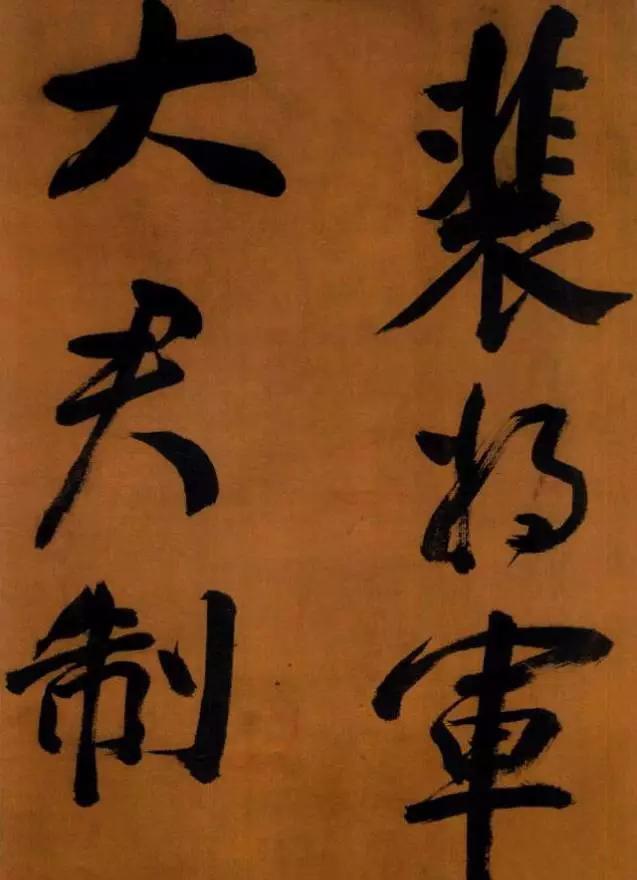 裴将軍
大君制